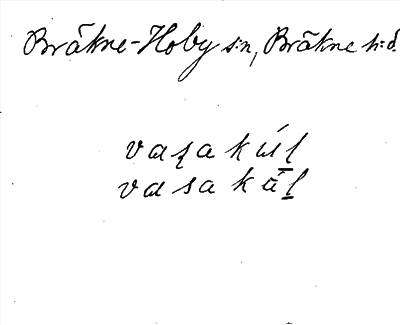 Bräkne-Hoby s:n, Bräkne h:d.
vasakúl
vasakål